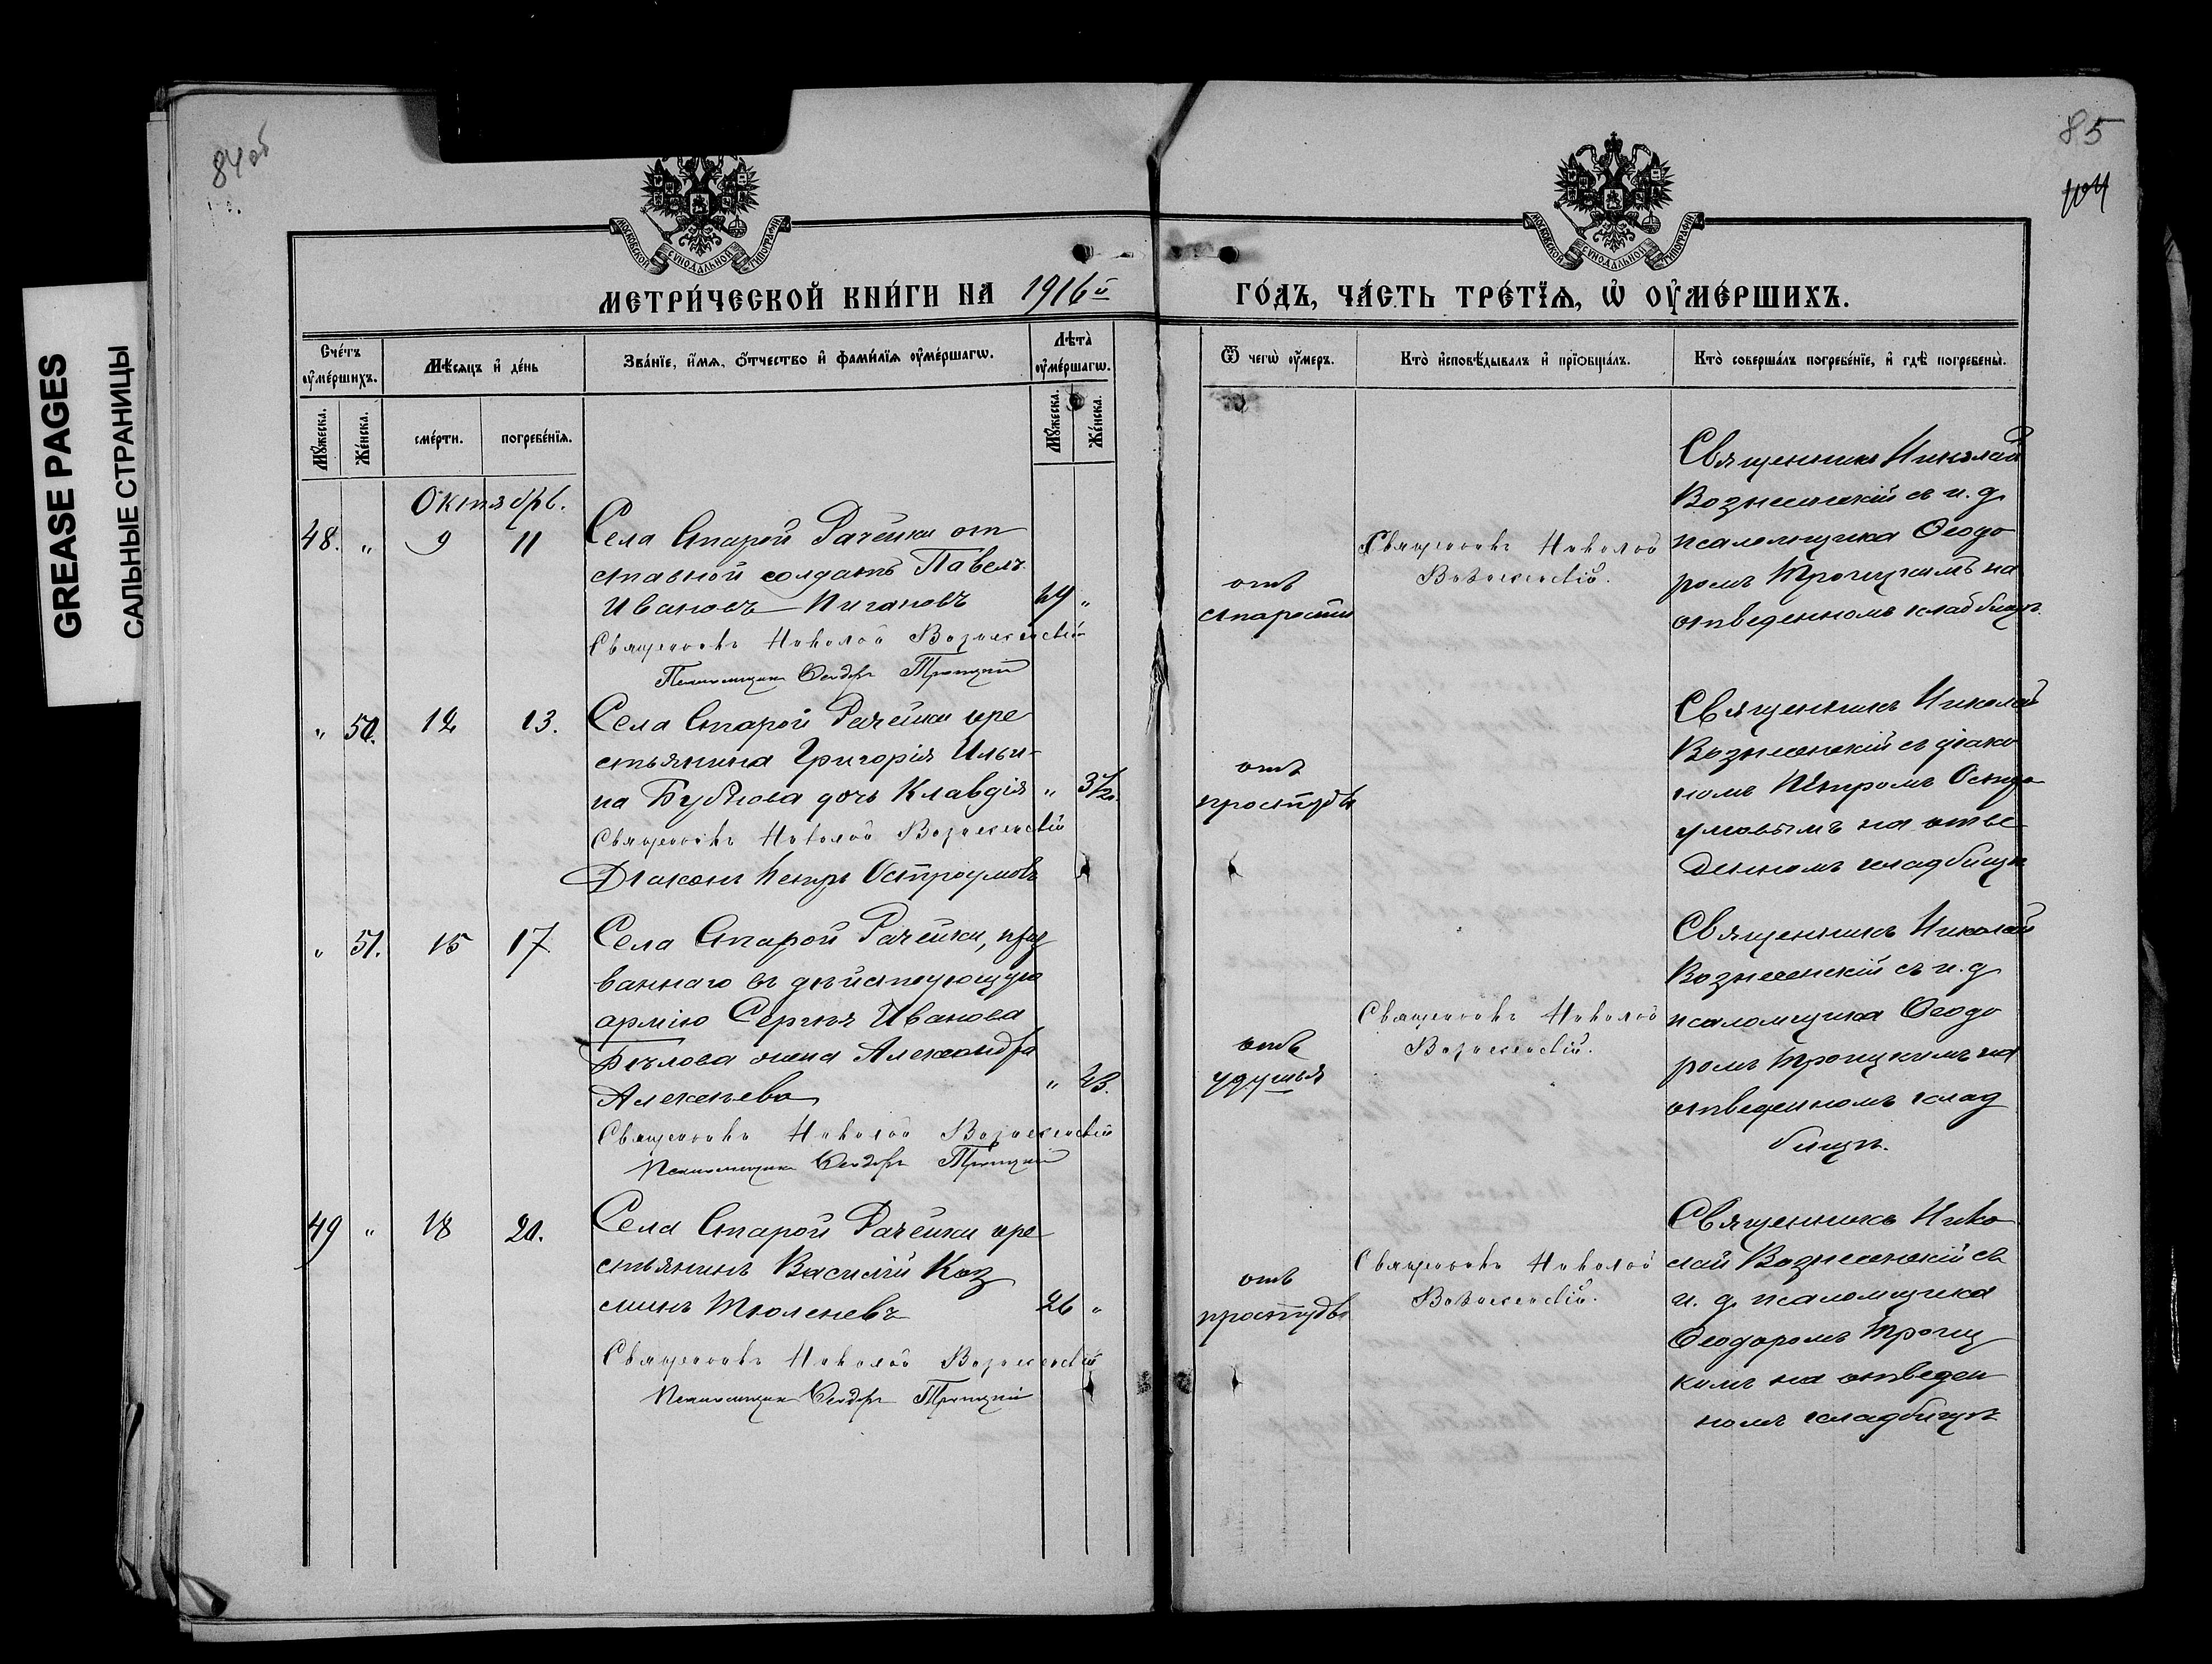 84об
85
104
GREASE PAGES
САЛЬНЫЕ СТРАНИЦЫ
МОСКОВСКОЙ СѴНОДАЛЬНОЙ ТИПОГРАФІИ
МОСКОВСКОЙ СѴНОДАЛЬНОЙ ТИПОГРАФІИ
МЕТРИ́ЧЕСКОЙ КНИ́ГИ НА 1916й
ГО́ДЪ, ЧА́СТЬ ТРЕ́ТЇѦ, Ѡ҆ ОУ҆МЕ́РШИХЪ.
Сче́тъ оу҆ме́ршихъ.
Мѣ́сяцъ и҆ де́нь
Зва́нїе, и҆́мѧ, ѻ҆́тчество и҆ фами́лїѧ оу҆ме́ршагѡ.
Лѣта̀ оу҆ме́ршагѡ.
Мꙋ́жеска.
Же́нска.
сме́рти.
погребе́нїѧ.
Мꙋ́жеска.
Же́нска.
Ѿ чегѡ̀ оу҆́меръ.
Кто̀ и҆сповѣ́дывалъ и҆ прїѡбща́лъ.
Кто̀ соверша́лъ погребе́нїе, и҆ гдѣ̀ погребены̀.
Октябрь.
48. " 9 11
Села Старой Рачейки от
ставной солдатъ Павелъ
Ивановъ Пигановъ 69 "
Священникъ Николай Вознесенскій
Псаломщикъ Ѳеодоръ Троицкій
отъ
старости
Священникъ Николай
Вознесенскій.
Священникъ Николай
Вознесенскій съ и. д.
псаломщика Ѳеодо
ромъ Троицкимъ на
отведенномъ кладбищѣ.
" 50. 12 13.
Села Старой Рачейки кре
стьянина Григорія Ильи-
на Бубнова дочь Клавдія " 3/
Священникъ Николай Вознесенскій
Діаконъ Петръ Остроумовъ
отъ
простуды
Священникъ Николай
Вознесенскій съ діако
номъ Петромъ Остро
умовымъ на отве
денномъ кладбищѣ
" 51. 15 17
Села Старой Рачейки, приз
ваннаго въ дѣйствующую
армію Сергѣя Иванова
Бѣлова жена Александра
Алексѣева " 23.
Священникъ Николай Вознесенскій
Псаломщикъ Ѳеодоръ Троицкій
отъ
удушья
Священникъ Николай
Вознесенскій.
Священникъ Николай
Вознесенскій съ и. д
псаломщика Ѳеодо
ромъ Троицкимъ на
отведенномъ клад
бищѣ.
49 " 18 20.
Села Старой Рачейки кре
стьянинъ Василій Коз
минъ Тюленевъ 26 "
Священникъ Николай Вознесенскій
Псаломщикъ Ѳеодоръ Троицкій
отъ
простуды
Священникъ Николай
Вознесенскій.
Священникъ Нико
лай Вознесенскій съ
и. д. псаломщика
Ѳеодоромъ Троиц
кимъ на отведен
номъ кладбищѣ